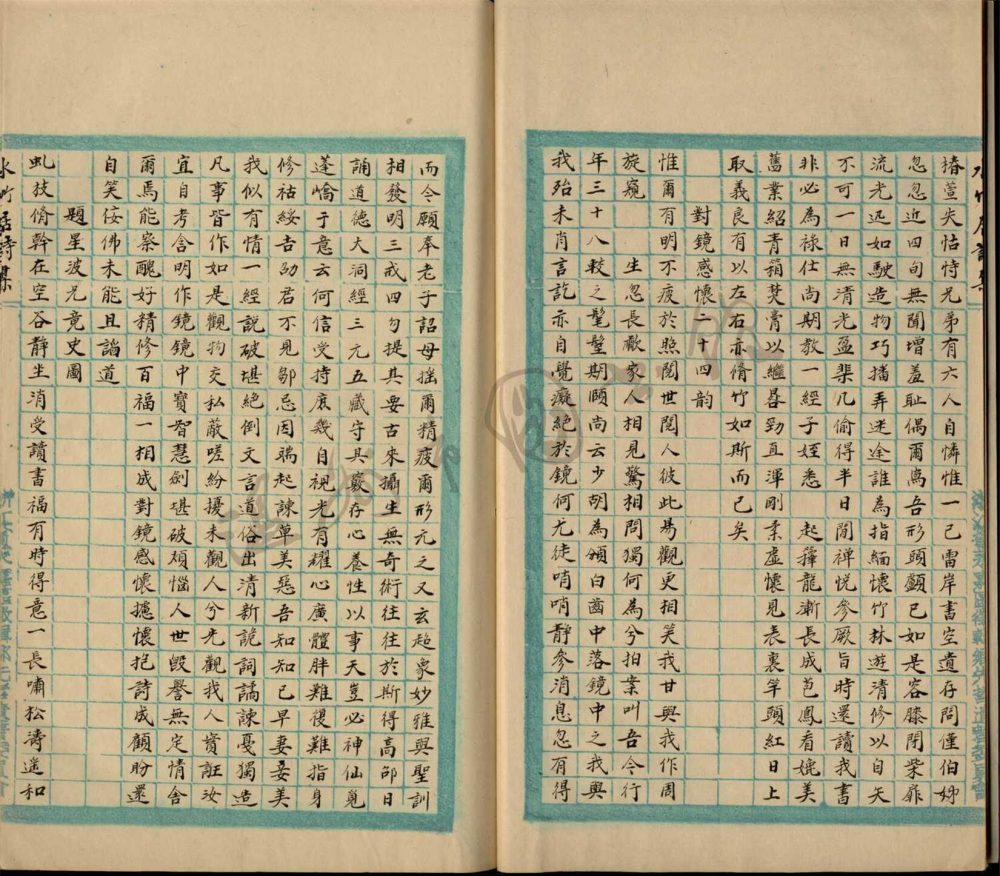 椿萱失怙恃兄弟有六人自憐惟一己雷岸書空遺存問僅伯姊
忽忽近四旬無聞增羞耻偶爾寓吾形頭顱已如是容膝閉柴扉
流光迅如駛造物巧播弄迷途誰為指緬懷竹林遊清修以自矢
不可一日無清光盈棐几偷得半日閒禪悦參厥旨時還讀我書
非必為祿仕尚期教一經子姪悉 起籜龍漸長成苞鳳看媲美
舊業紹青箱焚膏以繼晷勁直渾剛柔虛懷見表裏竿頭紅日上
取義良有以左右亦脩竹如斯而已矣
對鏡感懷二十四韵
惟爾有明不疲於照閱世閱人彼此易觀更相笑我甘與我作周
旋窺 生忽長歡家人相見驚相問獨何為兮拍案叫吾今行
年三十八較之髦髦期頤尚云少胡為頒白齒中落鏡中之我與
我殆未肯言訖亦自覺癡絕於鏡何尤徒哨哨靜參消息忽有得
而今願奉老子詔母搖爾精疲爾形元之又玄超象妙雅與聖訓
相發明三戒四勿提其要古來攝生無奇術往往於斯得高邵日
誦道德大洞經三元五藏守其竅存心養性以事天豈必神仙覓
蓬嶠于意云何信受持庶幾自視光有耀心廣體胖難復難指身
修祜綏吉劭君不見鄒忌因瑞起諫草美惡吾知知已早妻妾美
我似有情一經說破堪絕倒文言道俗出清新詭詞譎諫憂獨造
凡事皆作如是觀物交私蔽嗟紛擾未觀人兮先觀我人實誑汝
宜自考含明作鏡鏡中寶智慧劍堪破煩惱人世毀譽無定情舍
爾焉能察醜好精修百福一相成對鏡感懷攄懷抱詩成顧盼還
自笑佞佛未能且諂道
題星波兄竟史圖
虬枝脩幹在空谷靜坐消受讀書福有時得意一長嘯松濤遙和
水竹居詩集